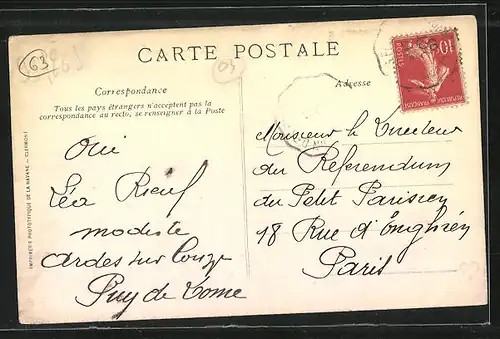 CARTE POSTALE
63
Correspondance
Tous les pays étrangers n'acceptent pas la
correspondance au recto, se renseigner à la Poste
Oui
Léa Rieuf
modiste
Ardes sur Couze
Puy de Dome
Adresse
Monsieur le Directeur
du Referendum
du Petit Parisien
18 Rue d'Enghien
Paris
10
POSTES
REPUBLIQUE FRANÇAISE
IMPRIMERIE PHOTOTYPIQUE DE LA MAYANE - CLERMONT